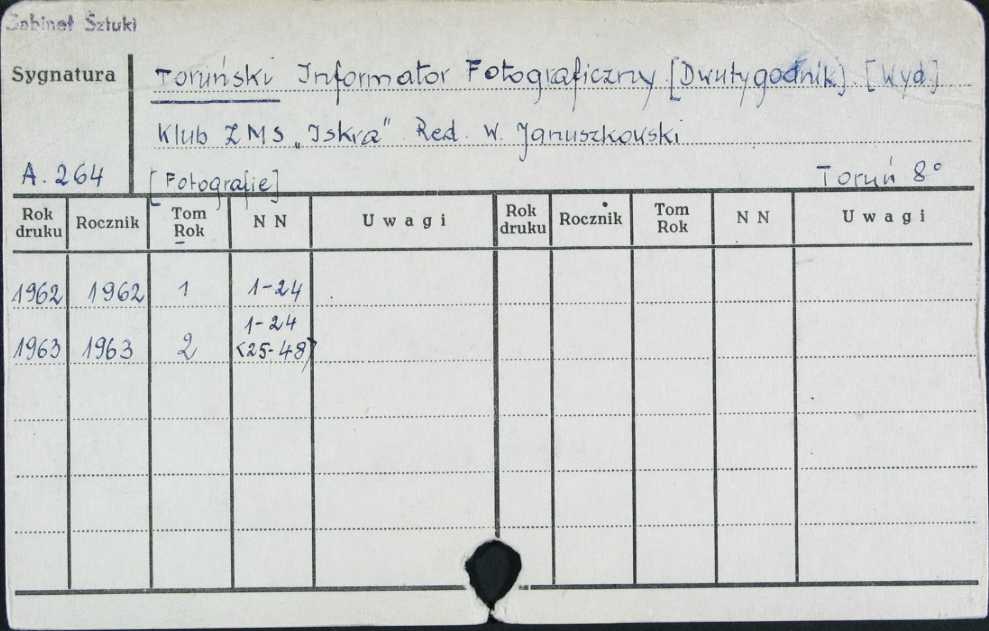 Gabinet Sztuki
Sygnatura
Toruński Informator Fotograficzny [Dwutygodnik] [Wyd.]
Klub ZMS „Iskra” Red. W. Januszkowski
A. 264
[Fotografie]
Toruń 8°
Rok druku Rocznik Tom Rok NN Uwagi Rok druku Rocznik Tom Rok NN Uwagi
1962 1962 1 1-24
1963 1963 2 1-24
<25-48>